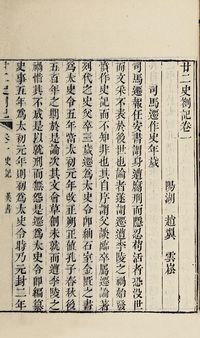 廿二史劄記卷
陽湖 趙翼 雲崧
司馬遷作史年歲
司馬遷報任安書謂身遭腐刑而隱忍苟活者恐沒世
而文采不表於後世也論者遂謂遷遭李陵之禍始發
憤作史記而不知非也其自序謂父談臨卒屬遷論著
列代之史父卒三歲遷爲太史令即紬石室金匱之書
爲太史令五年當太初元年改正朔正值孔子春秋後
五百年之期於是論次其文會草創未就而遭李陵之
禍惜其不成是以就刑而無怨是遷爲太史令即編纂
史事五年爲太初元年則初爲太史令時乃元封二年
史記 漢書